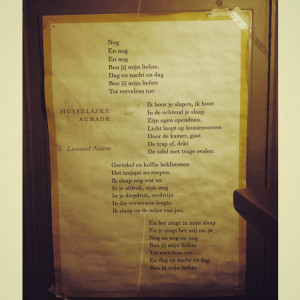 Nog
En nog
En nog
Ben jij mijn liefste.
Dag en nacht en dag
Ben jij mijn liefste
Tot vervelens toe.
HUISELIJKE
AUBADE
Leonard Nolens
Ik hoor je slapen, ik hoor
In de ochtend je slaap
Zijn ogen opendoen.
Licht loopt op kousenvoeten
Door de kamer, gaat
De trap af, dekt
De tafel met trage ovalen.
Gerinkel en koffie beklimmen
Het trapgat en roepen.
Ik slaap nog wat na
In je afdruk, weg
In je diepdruk, verdwijn
In die leegte.
Ik slaap op de wijze van jou.
En het zingt in mijn slaap
En je zingt het mij na, ja
Nog en nog en nog
Ben jij mijn liefste
Tot vervelens toe
En dag en nacht en dag
Ben jij mijn liefste.